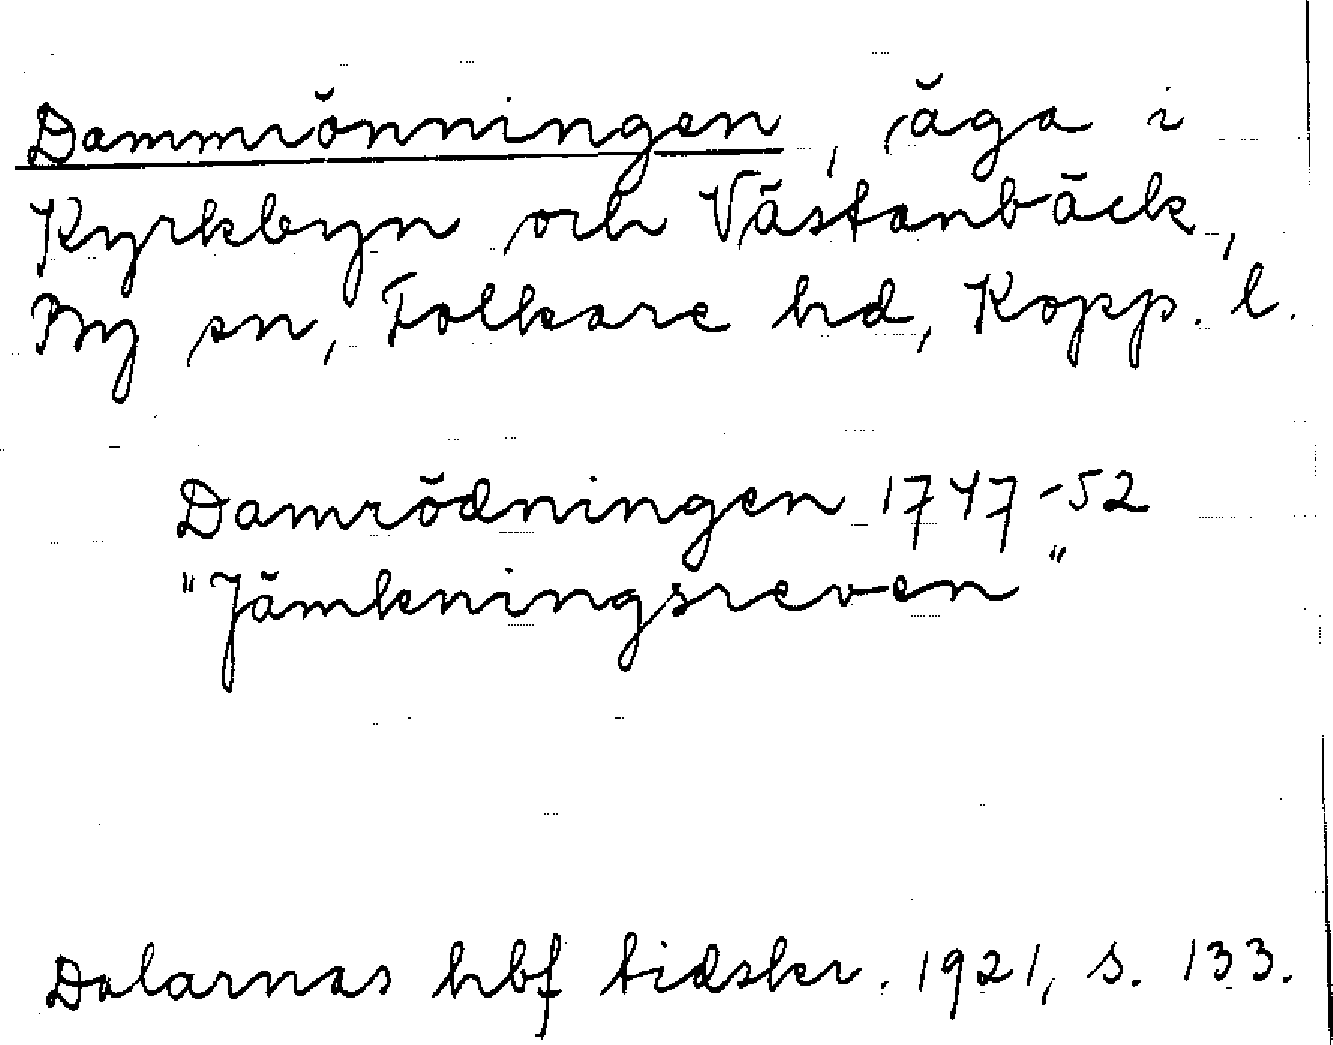 Dammrönningen, äga i
Kyrkbyn och Västanbäck,
By sn, Folkare hd, Kopp. l.
Damrödningen 1747-52
"Jämkningsreven"
Dalarnas hbf tidskr. 1921, s. 133.